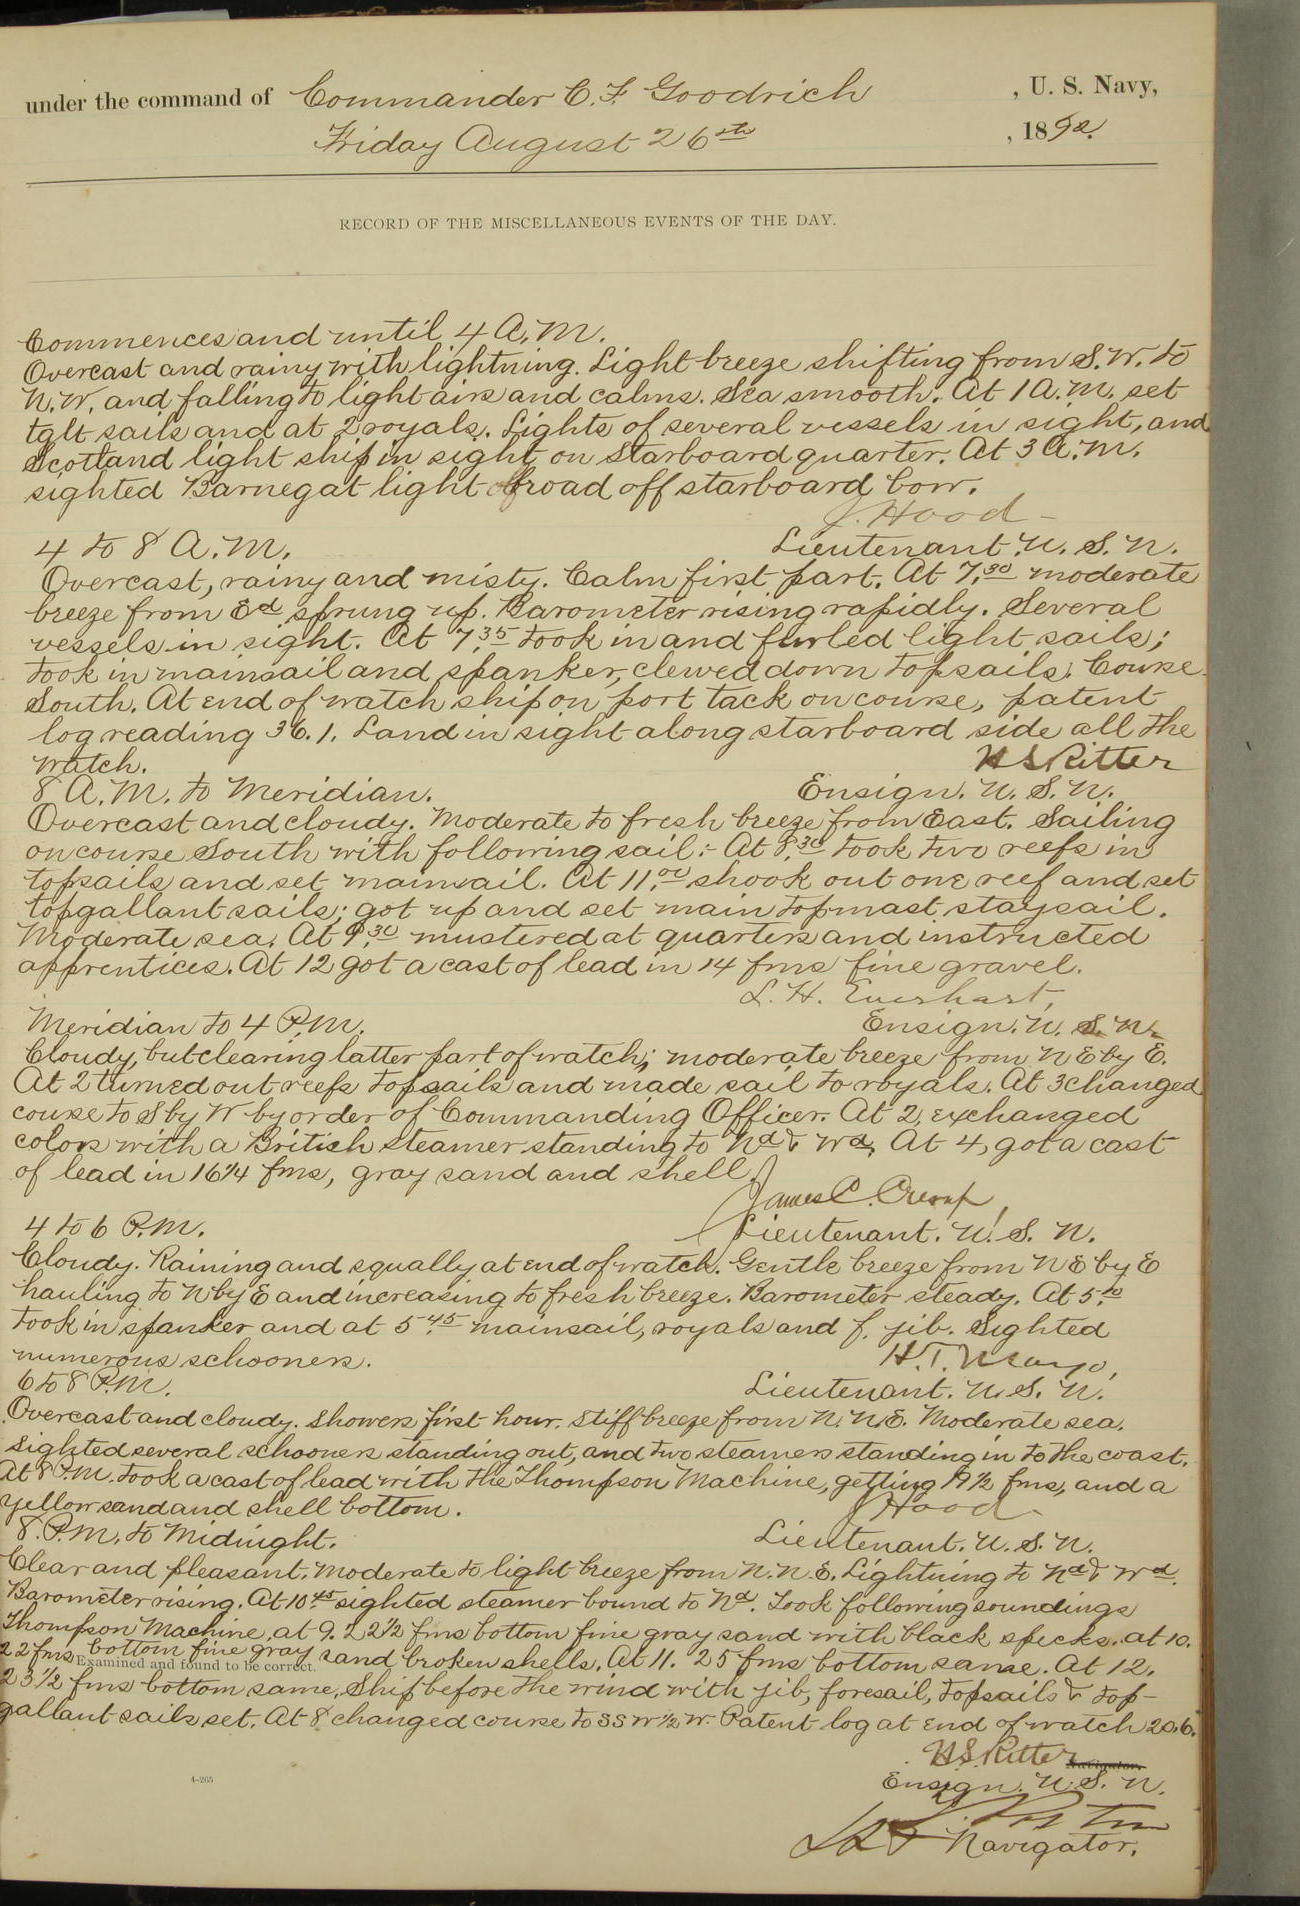 under the command of Commander C. F. Goodrich, U. S. Navy,
Friday August 26th, 1892.
RECORD OF THE MISCELLANEOUS EVENTS OF THE DAY.
Commences and until 4 A.M.
Overcast and rainy with lightning. Light breeze shifting from S.W. to
N.W. and falling to light airs and calms. Sea smooth. At 1 A.M. set
tglt sails and at 2 royals. Lights of several vessels in sight, and
Scotland light ship in sight on starboard quarter. At 3 A.M.
sighted Barnegat light broad off starboard bow.
J. Hood
4 to 8 A.M. Lieutenant. U. S. N.
Overcast, rainy and misty. Calm first part. At 7.30 moderate
breeze from Ed sprung up. Barometer rising rapidly. Several
vessels in sight. At 7.35 took in and furled light sails;
took in mainsail and spanker, clewed down topsails. Course
South. At end of watch ship on port tack on course, patent
log reading 36.1. Land in sight along starboard side all the
watch. H S Ritter
8 A.M. to Meridian. Ensign. U. S. N.
Overcast and cloudy. Moderate to fresh breeze from East. Sailing
on course South with following sail:- At 8.30 took two reefs in
topsails and set mainsail. At 11.00 shook out one reef and set
topgallant sails; got up and set main topmast staysail.
Moderate sea. At 9.30 mustered at quarters and instructed
apprentices. At 12 got a cast of lead in 14 fms fine gravel.
L. H. Everhart,
Meridian to 4 P.M. Ensign. U. S. N.
Cloudy, but clearing latter part of watch; moderate breeze from NE by E.
At 2 turned out reefs topsails and made sail to royals. At 3 changed
course to S by W by order of Commanding Officer. At 2, exchanged
colors with a British steamer standing to Nd & Wd. At 4, got a cast
of lead in 16 1/4 fms, gray sand and shell.
James C.
4 to 6 P.M. Lieutenant. U. S. N.
Cloudy. Raining and squally at end of watch. Gentle breeze from NE by E
hauling to N by E and increasing to fresh breeze. Barometer steady. At 5.
took in spanker and at 5.45 mainsail, royals and f. jib. Sighted
numerous schooners. H. T. Mayo,
6 to 8 P.M. Lieutenant. U. S. N.
Overcast and cloudy. Showers first hour. Stiff breeze from N.N.E. Moderate sea.
Sighted several schooners standing out, and two steamers standing in to the coast.
At 8 P.M. took a cast of lead with the Thompson Machine, getting 19 1/2 fms, and a
yellow sand and shell bottom. J Hood
8. P.M. to Midnight. Lieutenant. U. S. N.
Clear and pleasant. Moderate to light breeze from N.N.E. Lightning to Nd & Wd.
Barometer rising. At 10.45 sighted steamer bound to Nd. Took following soundings
Thompson Machine, at 9. 22 1/2 fms bottom fine gray sand with black specks. at 10.
22 fms bottom fine gray sand broken shells. At 11. 25 fms bottom same. At 12.
Examined and found to be correct.
23 1/2 fms bottom same. Ship before the wind with jib, foresail, topsails & top-
gallant sails set. At 8 changed course to SSW 1/2 W. Patent log at end of watch 20.6.
H S. Ritter
Navigator.
Ensign. U. S. N.
4-265
Navigator.